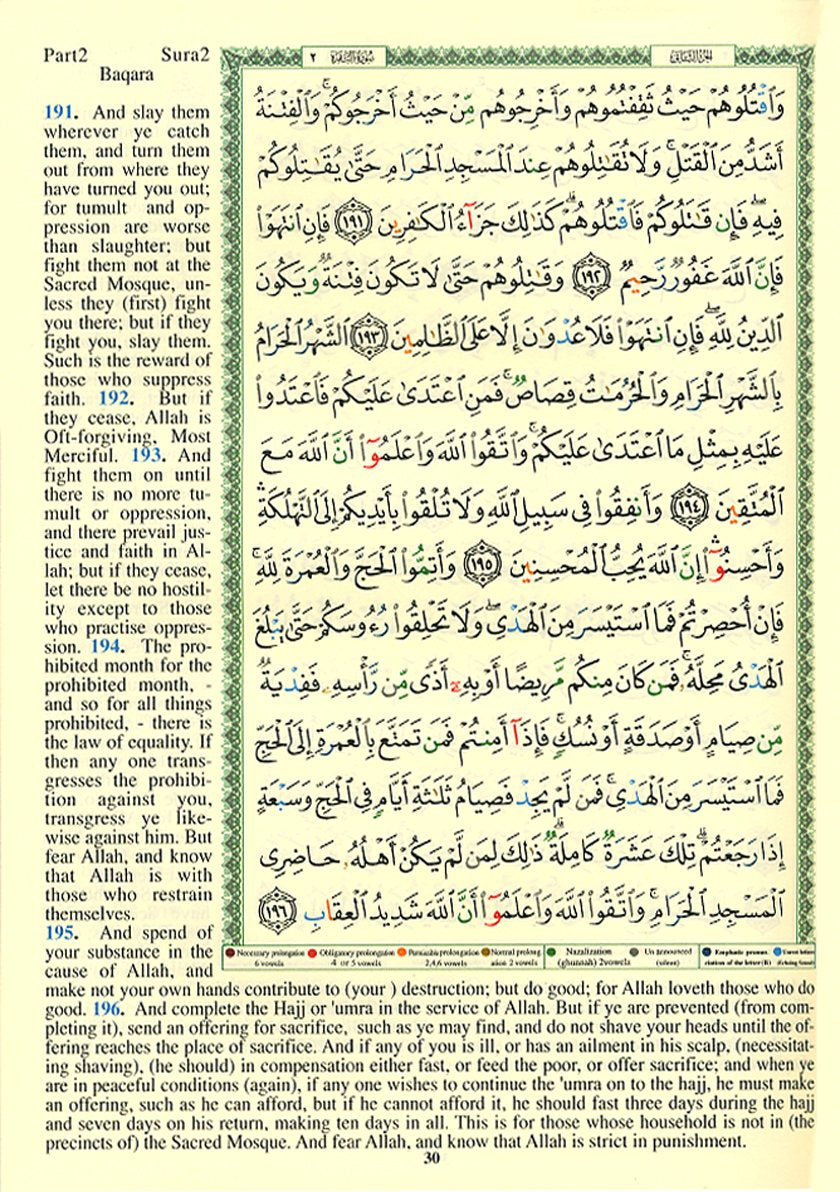 Part2 Sura2
Baqara
191. And slay them
wherever ye catch
them, and turn them
out from where they
have turned you out;
for tumult and op-
pression are worse
than slaughter; but
fight them not at the
Sacred Mosque, un-
less they (first) fight
you there; but if they
fight you, slay them.
Such is the reward of
those who suppress
faith. 192. But if
they cease, Allah is
Oft-forgiving, Most
Merciful. 193. And
fight them on until
there is no more tu-
mult or oppression,
and there prevail jus-
tice and faith in Al-
lah; but if they cease,
let there be no hostil-
ity except to those
who practise oppres-
sion. 194. The pro-
hibited month for the
prohibited month, -
and so for all things
prohibited, - there is
the law of equality. If
then any one trans-
gresses the prohibi-
tion against you,
transgress ye like-
wise against him. But
fear Allah, and know
that Allah is with
those who restrain
themselves.
195. And spend of
your substance in the
cause of Allah, and
make not your own hands contribute to (your ) destruction; but do good; for Allah loveth those who do
good. 196. And complete the Hajj or 'umra in the service of Allah. But if ye are prevented (from com-
pleting it), send an offering for sacrifice, such as ye may find, and do not shave your heads until the of-
fering reaches the place of sacrifice. And if any of you is ill, or has an ailment in his scalp, (necessitat-
ing shaving), (he should) in compensation either fast, or feed the poor, or offer sacrifice; and when ye
are in peaceful conditions (again), if any one wishes to continue the 'umra on to the hajj, he must make
an offering, such as he can afford, but if he cannot afford it, he should fast three days during the hajj
and seven days on his return, making ten days in all. This is for those whose household is not in (the
precincts of) the Sacred Mosque. And fear Allah, and know that Allah is strict in punishment.
الجزء الثاني سورة البقرة ٢
وَاقْتُلُوهُمْ حَيْثُ ثَقِفْتُمُوهُمْ وَأَخْرِجُوهُم مِّنْ حَيْثُ أَخْرَجُوكُمْ ۚ وَالْفِتْنَةُ
أَشَدُّ مِنَ الْقَتْلِ ۚ وَلَا تُقَاتِلُوهُمْ عِندَ الْمَسْجِدِ الْحَرَامِ حَتَّىٰ يُقَاتِلُوكُمْ
فِيهِ ۖ فَإِن قَاتَلُوكُمْ فَاقْتُلُوهُمْ ۗ كَذَٰلِكَ جَزَاءُ الْكَافِرِينَ ١٩١ فَإِنِ انتَهَوْا
فَإِنَّ اللَّهَ غَفُورٌ رَّحِيمٌ ١٩٢ وَقَاتِلُوهُمْ حَتَّىٰ لَا تَكُونَ فِتْنَةٌ وَيَكُونَ
الدِّينُ لِلَّهِ ۖ فَإِنِ انتَهَوْا فَلَا عُدْوَانَ إِلَّا عَلَى الظَّالِمِينَ ١٩٣ الشَّهْرُ الْحَرَامُ
بِالشَّهْرِ الْحَرَامِ وَالْحُرُمَاتُ قِصَاصٌ ۚ فَمَنِ اعْتَدَىٰ عَلَيْكُمْ فَاعْتَدُوا
عَلَيْهِ بِمِثْلِ مَا اعْتَدَىٰ عَلَيْكُمْ ۚ وَاتَّقُوا اللَّهَ وَاعْلَمُوا أَنَّ اللَّهَ مَعَ
الْمُتَّقِينَ ١٩٤ وَأَنفِقُوا فِي سَبِيلِ اللَّهِ وَلَا تُلْقُوا بِأَيْدِيكُمْ إِلَى التَّهْلُكَةِ ۛ
وَأَحْسِنُوا ۛ إِنَّ اللَّهَ يُحِبُّ الْمُحْسِنِينَ ١٩٥ وَأَتِمُّوا الْحَجَّ وَالْعُمْرَةَ لِلَّهِ ۚ
فَإِنْ أُحْصِرْتُمْ فَمَا اسْتَيْسَرَ مِنَ الْهَدْيِ ۖ وَلَا تَحْلِقُوا رُءُوسَكُمْ حَتَّىٰ يَبْلُغَ
الْهَدْيُ مَحِلَّهُ ۚ فَمَن كَانَ مِنكُم مَّرِيضًا أَوْ بِهِ أَذًى مِّن رَّأْسِهِ فَفِدْيَةٌ
مِّن صِيَامٍ أَوْ صَدَقَةٍ أَوْ نُسُكٍ ۚ فَإِذَا أَمِنتُمْ فَمَن تَمَتَّعَ بِالْعُمْرَةِ إِلَى الْحَجِّ
فَمَا اسْتَيْسَرَ مِنَ الْهَدْيِ ۚ فَمَن لَّمْ يَجِدْ فَصِيَامُ ثَلَاثَةِ أَيَّامٍ فِي الْحَجِّ وَسَبْعَةٍ
إِذَا رَجَعْتُمْ ۗ تِلْكَ عَشَرَةٌ كَامِلَةٌ ۗ ذَٰلِكَ لِمَن لَّمْ يَكُنْ أَهْلُهُ حَاضِرِي
الْمَسْجِدِ الْحَرَامِ ۚ وَاتَّقُوا اللَّهَ وَاعْلَمُوا أَنَّ اللَّهَ شَدِيدُ الْعِقَابِ ١٩٦
Necessary prolongation 6 vowels
Obligatory prolongation 4 or 5 vowels
Permissible prolongation 2,4,6 vowels
Normal prolongation 2 vowels
Nazalization (ghunnah) 2vowels
Un announced (silent)
30